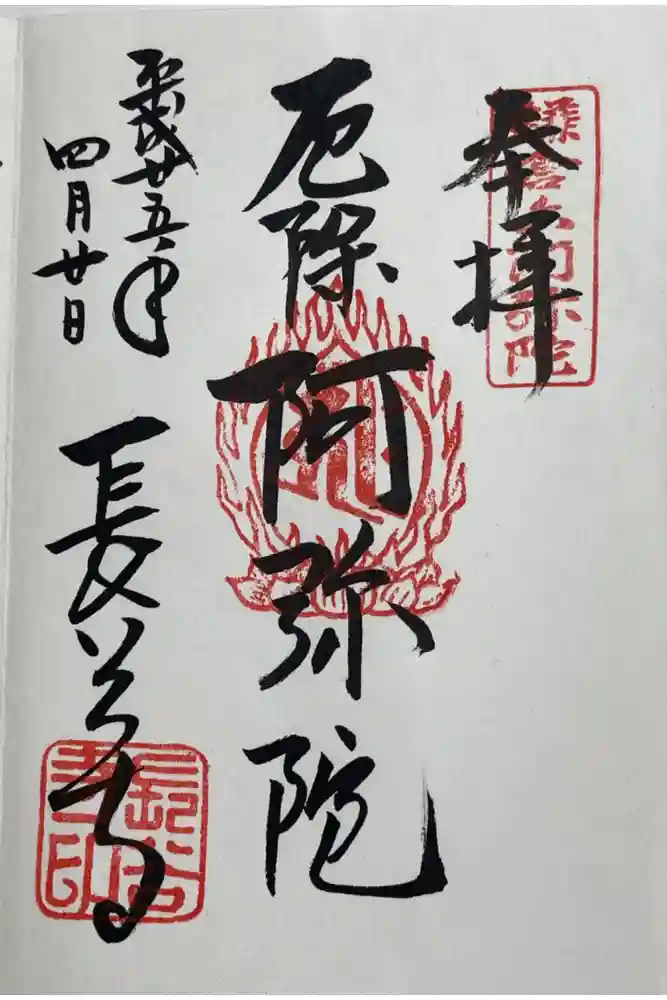 奉拝
厄除阿弥陀
平成廿五年
四月廿日
長谷寺
長谷寺印